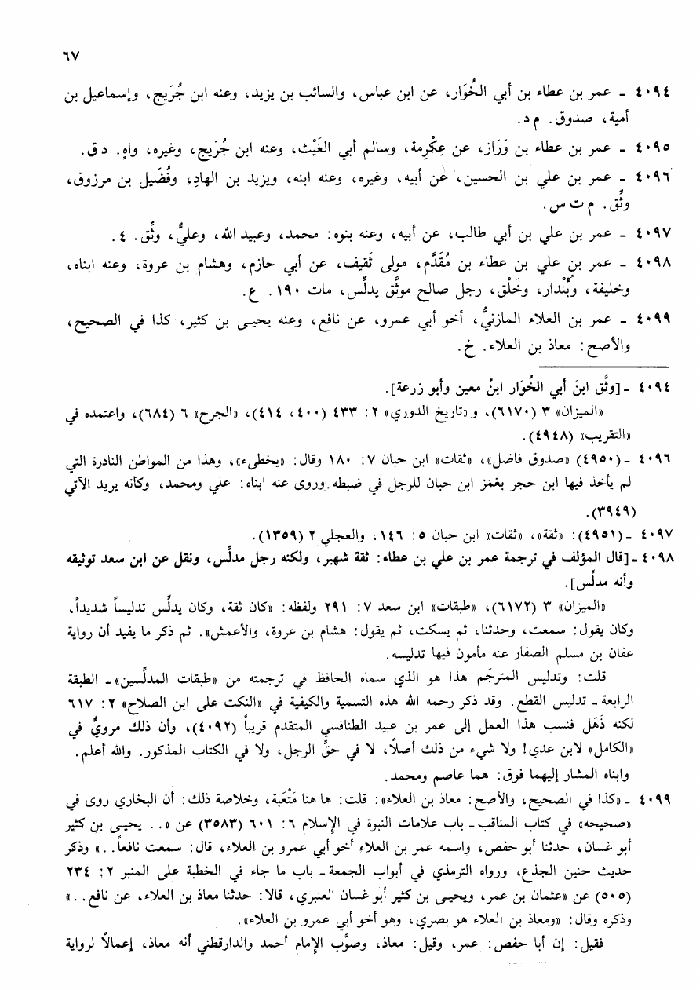 ٦٧
٤٠٩٤ ـ عمر بن عطاء بن أبي الخُوَار، عن ابن عباس، والسائب بن يزيد، وعنه ابن جُرَيج، وإسماعيل بن
أمية، صدوق. م د.
٤٠٩٥ ـ عمر بن عطاء بن وَرَاز، عن عِكْرِمة، وسالم أبي الغَيْث، وعنه ابن جُرَيج، وغيره، واهٍ. د ق.
٤٠٩٦ ـ عمر بن علي بن الحسين، عن أبيه، وغيره، وعنه ابنه، ويزيد بن الهادِ، وفُضَيل بن مرزوق،
وثِّق. م ت س.
٤٠٩٧ ـ عمر بن علي بن أبي طالب، عن أبيه، وعنه بنوه: محمد، وعبيد الله، وعليٌّ، وثِّق. ٤.
٤٠٩٨ ـ عمر بن علي بن عطاء بن مُقَدَّم، مولى ثَقيف، عن أبي حازم، وهشام بن عروة، وعنه ابناه،
وخليفة، وبُنْدار، وخَلْق، رجل صالح موثَّق يدلِّس، مات ١٩٠. ع.
٤٠٩٩ ـ عمر بن العلاء المازنيُّ، أخو أبي عمرو، عن نافع، وعنه يحيى بن كثير، كذا في الصحيح،
والأصح: معاذ بن العلاء. خ.
٤٠٩٤ ـ [وثَّق ابنَ أبي الخُوَار ابنُ معين وأبو زرعة].
«الميزان» ٣ (٦١٧٠)، و«تاريخ الدوري» ٢: ٤٣٣ (٤٠٠، ٤١٤)، «الجرح» ٦ (٦٨٤)، واعتمده في
«التقريب» (٤٩٤٨).
٤٠٩٦ ـ (٤٩٥٠) «صدوق فاضل»، «ثقات» ابن حبان ٧: ١٨٠ وقال: «يخطىء»، وهذا من المواطن النادرة التي
لم يأخذ فيها ابن حجر بغمز ابن حبان للرجل في ضبطه. وروى عنه ابناه: علي ومحمد، وكأنه يريد الآتي
(٣٩٤٩).
٤٠٩٧ ـ (٤٩٥١): «ثقة»، «ثقات» ابن حبان ٥: ١٤٦، والعجلي ٢ (١٣٥٩).
٤٠٩٨ ـ [قال المؤلف في ترجمة عمر بن علي بن عطاء: ثقة شهير، ولكنه رجل مدلِّس، ونقل عن ابن سعد توثيقه
وأنه مدلِّس].
«الميزان» ٣ (٦١٧٢)، «طبقات» ابن سعد ٧: ٢٩١ ولفظه: «كان ثقة، وكان يدلِّس تدليساً شديداً،
وكان يقول: سمعت، وحدثنا، ثم يسكت، ثم يقول: هشام بن عروة، والأعمش». ثم ذكر ما يفيد أن رواية
عفان بن مسلم الصفار عنه مأمون فيها تدليسه.
قلت: وتدليس المترجَم هذا هو الذي سماه الحافظ في ترجمته من «طبقات المدلِّسين» ـ الطبقة
الرابعة ـ تدليس القطع. وقد ذكر رحمه الله هذه التسمية والكيفية في «النكت على ابن الصلاح» ٢: ٦١٧
لكنه ذَهَل فنسب هذا العمل إلى عمر بن عبيد الطنافسي المتقدم قريباً (٤٠٩٢)، وأن ذلك مرويٌّ في
«الكامل» لابن عدي! ولا شيء من ذلك أصلاً، لا في حقِّ الرجل، ولا في الكتاب المذكور. والله أعلم.
وابناه المشار إليهما فوق: هما عاصم ومحمد.
٤٠٩٩ ـ «كذا في الصحيح، والأصح: معاذ بن العلاء»: قلت: ها هنا مَتْعَبة، وخلاصة ذلك: أن البخاري روى في
«صحيحه» في كتاب المناقب ـ باب علامات النبوة في الإسلام ٦: ٦٠١ (٣٥٨٣) عن «.. يحيى بن كثير
أبو غسان، حدثنا أبو حفص، واسمه عمر بن العلاء أخو أبي عمرو بن العلاء، قال: سمعت نافعاً..» وذكر
حديث حنين الجذع، ورواه الترمذي في أبواب الجمعة ـ باب ما جاء في الخطبة على المنبر ٢: ٢٣٤
(٥٠٥) عن «عثمان بن عمر، ويحيى بن كثير أبو غسان العنبري، قالا: حدثنا معاذ بن العلاء، عن نافع..»
وذكره وقال: «ومعاذ بن العلاء هو بصري، وهو أخو أبي عمرو بن العلاء».
فقيل: إن أبا حفص: عمر، وقيل: معاذ، وصوَّب الإمام أحمد والدارقطني أنه معاذ، إعمالاً لرواية